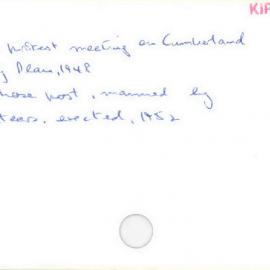 KIP
protest meeting on Cumberland
g Plan, 1948
hose post, manned by
teers, erected, 1952